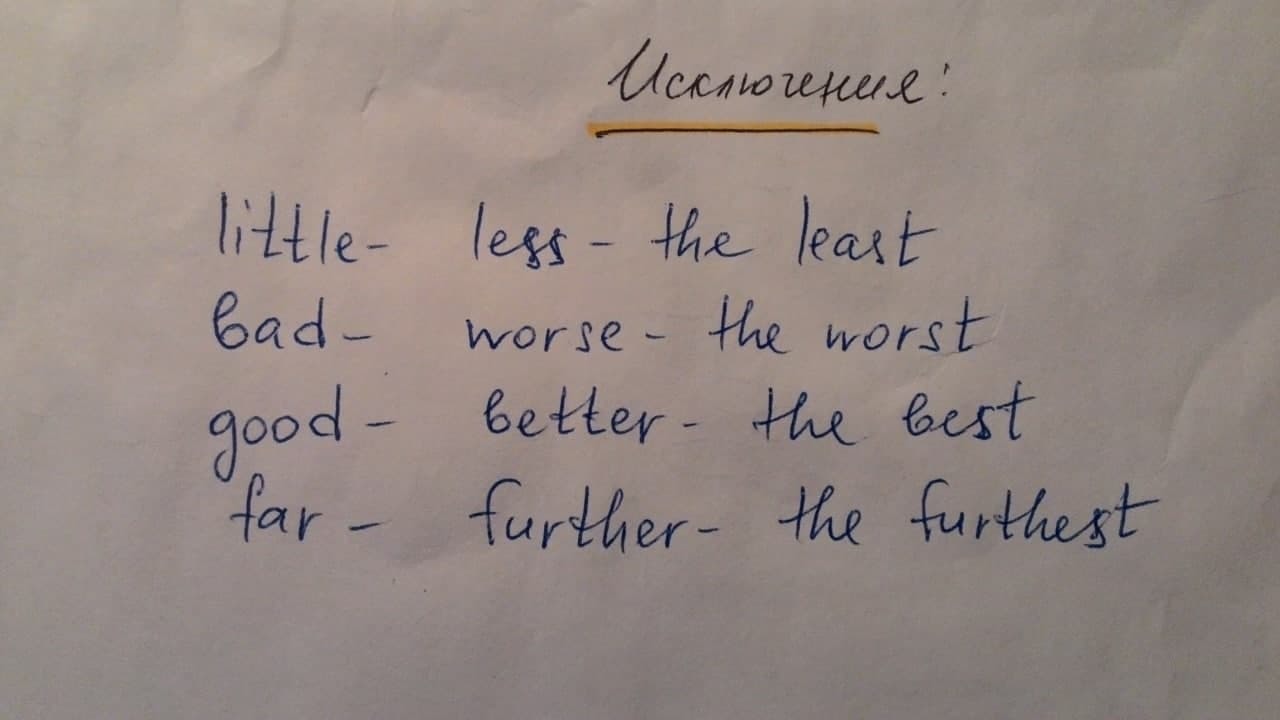 Исключения:
little- less - the least
bad - worse - the worst
good - better - the best
far - further - the furthest